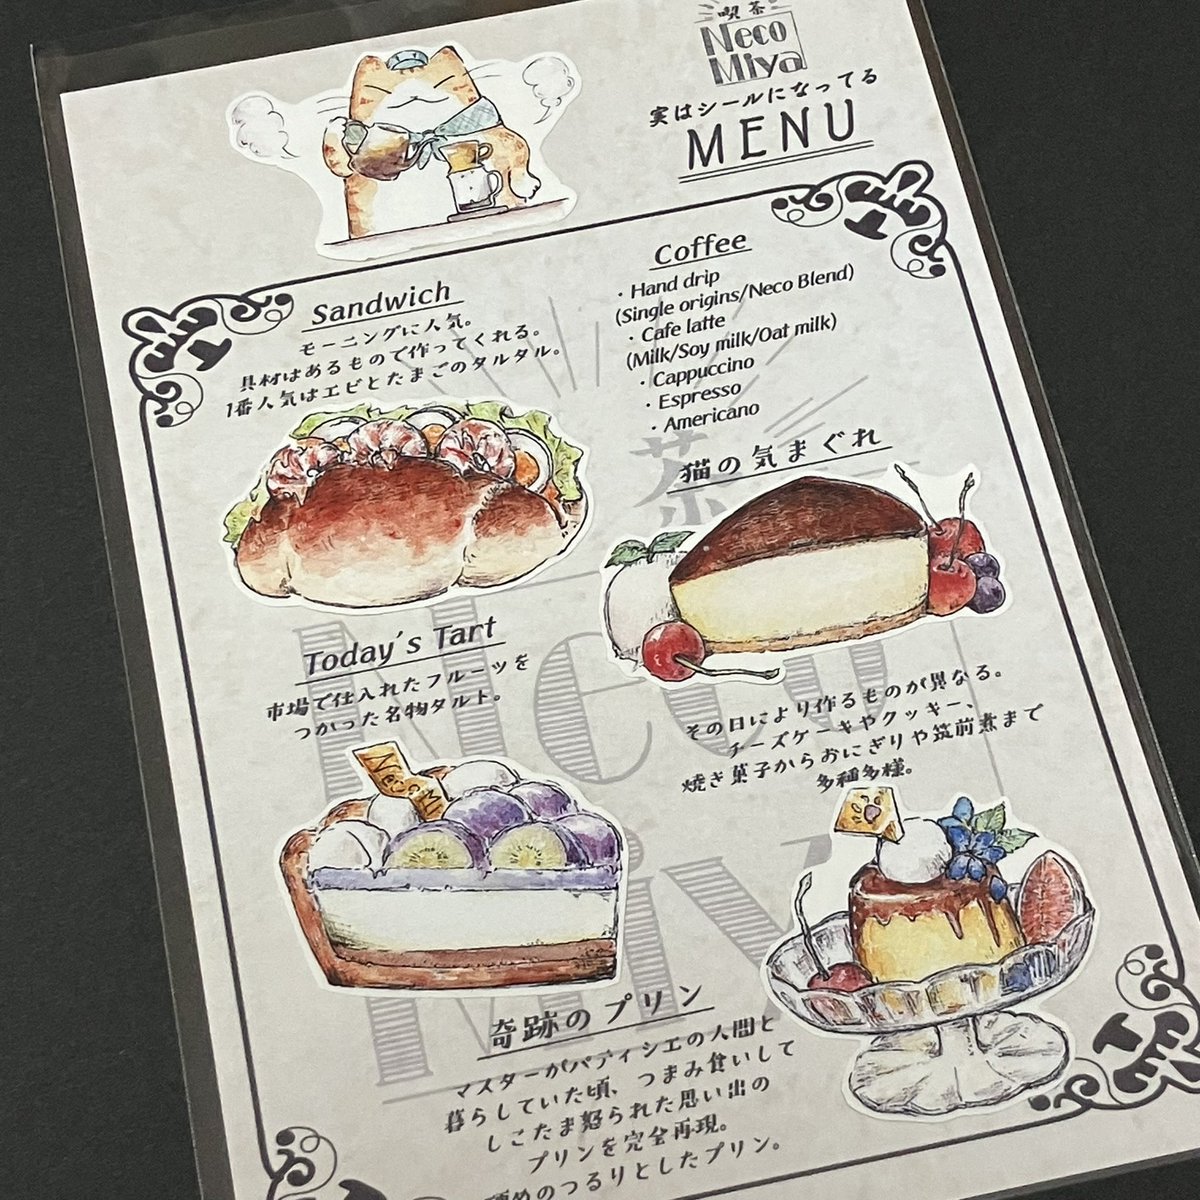 喫茶
Neco
Miya
実はシールになってる
MENU
Sandwich
モーニングに人気。
具材はあるもので作ってくれる。
1番人気はエビとたまごのタルタル。
Coffee
・Hand drip
(Single origins/Neco Blend)
・Cafe latte
(Milk/Soy milk/Oat milk)
・Cappuccino
・Espresso
・Americano
猫の気まぐれ
その日により作るものが異なる。
チーズケーキやクッキー、
焼き菓子からおにぎりや筑前煮まで
多種多様。
Today's Tart
市場で仕入れたフルーツを
つかった名物タルト。
奇跡のプリン
マスターがパティシエの人間と
暮らしていた頃、つまみ食いして
しこたま怒られた思い出の
プリンを完全再現。
硬めのつるりとしたプリン。
茶
Neco
Miy